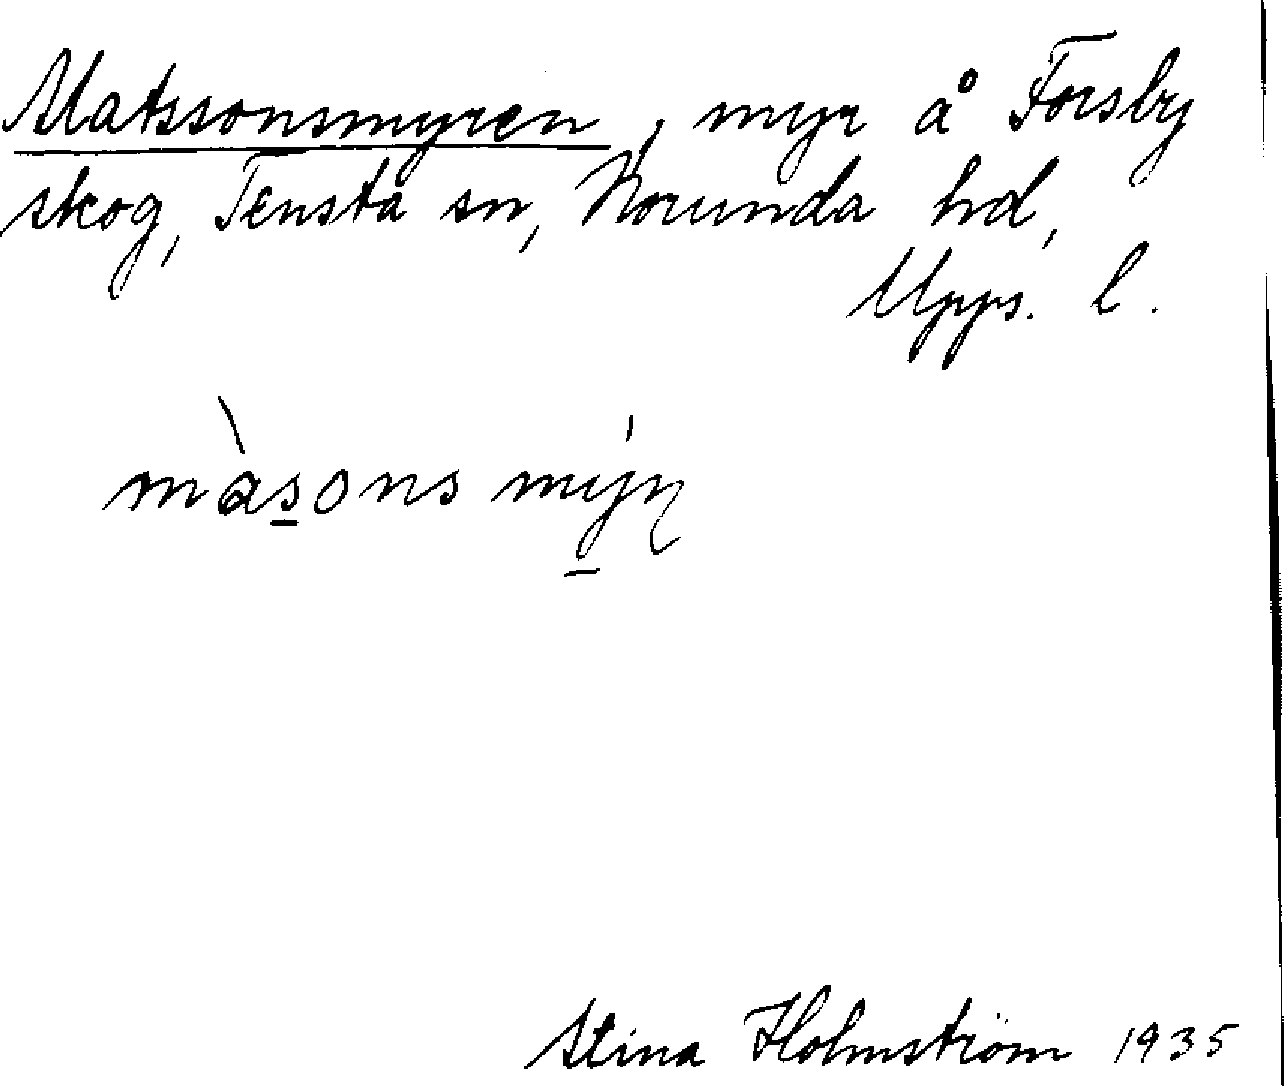 Matssonsmyren, myr å Forsby
skog, Tensta sn, Norunda hd,
Upps. l.
màs̲ons mý̲ɳ
Stina Holmström 1935